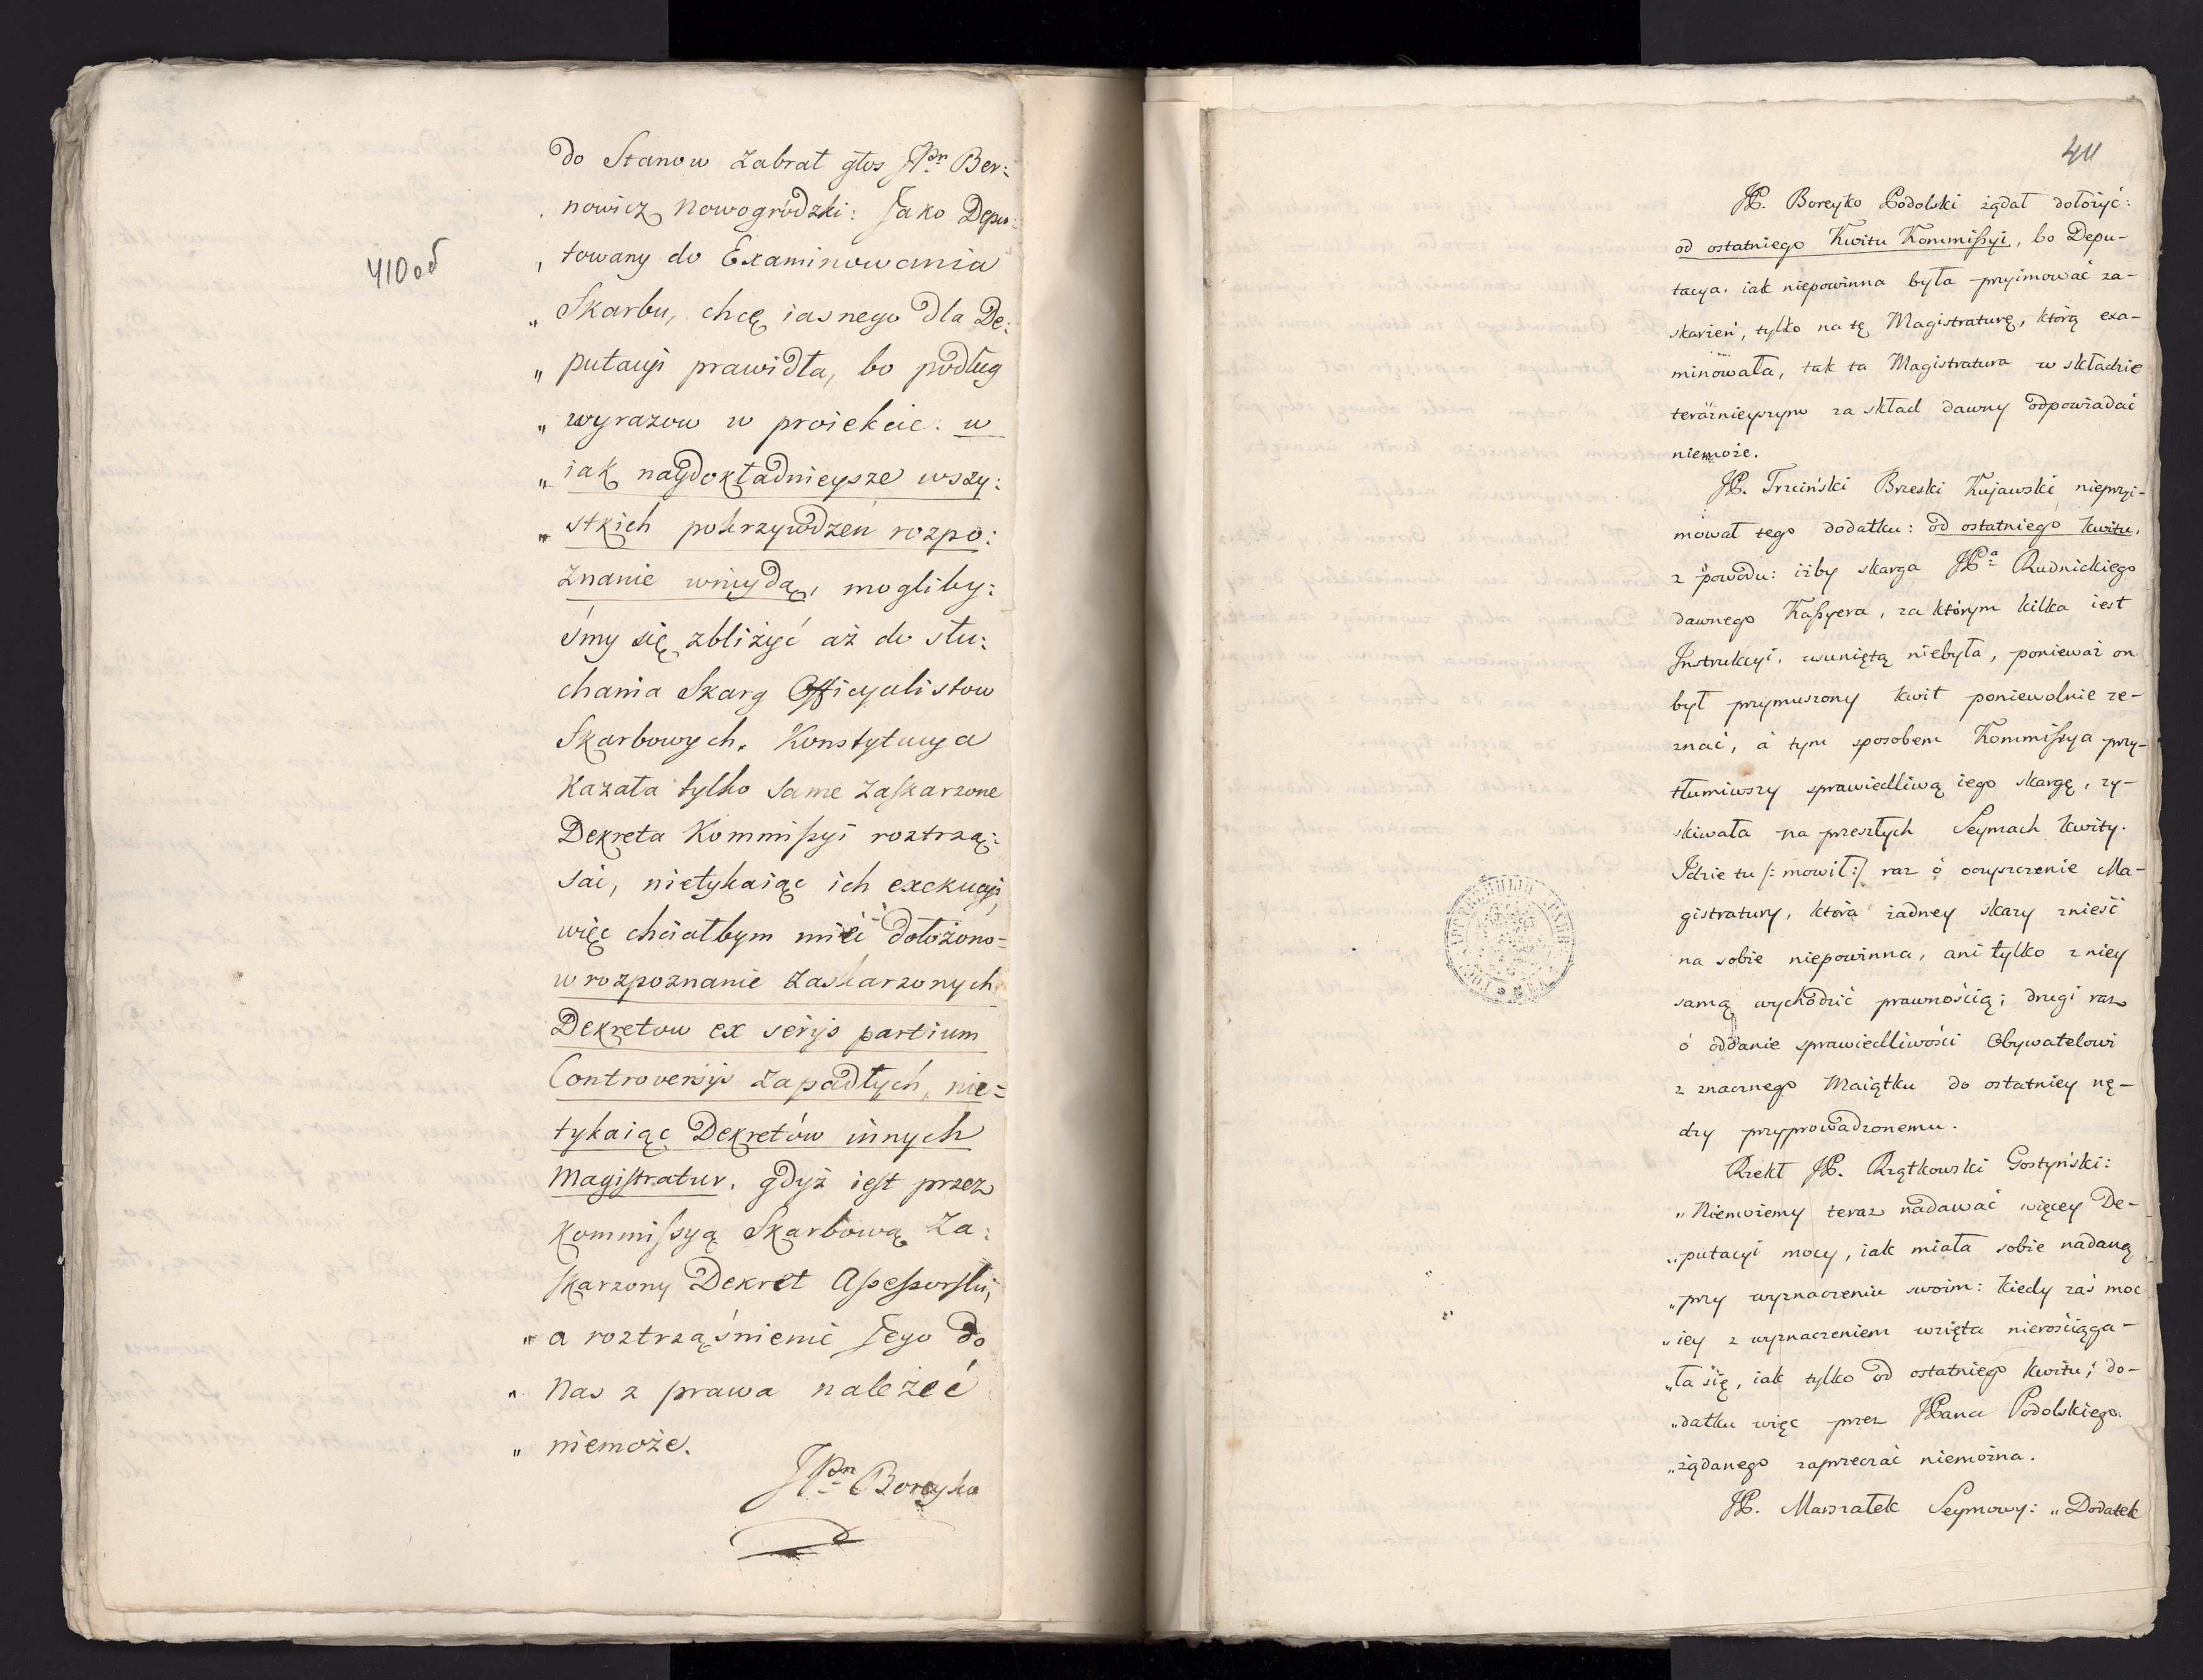 410 об
do Stanow zabrał głos JPn Ber:
nowicz Nowogródzki: Jako Depu:
„ towany do Examinowania
„ Skarbu, chcę iasnego dla De:
„ putacyi prawidła, bo podług
„ wyrazow w proiekcie: w
„ iak naydokładnieysze wszy:
„ stkich pokrzywdzeń rozpo:
znanie wniydą, mogliby:
śmy się zbliżyć aż do słu:
chania Skarg Officyalistow
Skarbowych. Konstytucya
kazała tylko same zaskarzone
Dekreta Kommissyi roztrzą:
sać, nietykaiąc ich exekucyi,
więc chciałbym mieć dołożono=
w rozpoznanie zaskarzonych
Dekretow ex serijs partium
Controversijs zapadłych, nie=
tykaiąc Dekretów innych
Magistratur. gdyż iest przez
Kommissyą Skarbową Za:
skarzony Dekret Assessorski,
„ a roztrząśnienie Jego do
„ Nas z prawa należeć
„ niemoże.
JPn Boreyko
411
JP. Boreyko Podolski żądał dołożyć:
od ostatniego Kwitu Kommissyi, bo Depu-
tacya. iak niepowinna była przyimować za-
skarżeń, tylko na tę Magistraturę, którą exa-
minowała, tak ta Magistratura w składzie
teraźnieyszym za skład dawny odpowiadać
niemoże.
JP. Trzciński Brzeski Kujawski nieprzyi-
mował tego dodatku: od ostatniego kwitu,
z powodu: iżby skarga JPa Rudnickiego
dawnego Kassyera, za którym kilka iest
Instrukcyi, usuniętą niebyła, ponieważ on
był przymuszony kwit poniewolnie ze-
znać, á tym sposobem Kommissya przy-
tłumiwszy sprawiedliwą iego skargę, zy-
skiwała na przeszłych Seymach kwity.
Idzie tu /: mowił :/ raz ó oczyszczenie Ma-
gistratury, która żadney skazy znieść
na sobie niepowinna, ani tylko z niey
samą wychodzić prawnością; drugi raz
ó oddanie sprawiedliwości Obywatelowi
z znacznego Maiątku do ostatniey nę-
dzy przyprowadzonemu.
Rzekł JP. Rzątkowski Gostyński:
„Niemożemy teraz nadawać więcey De-
„putacyi mocy, iak miała sobie nadaną
„przy wyznaczeniu swoim: kiedy zaś moc
„iey z wyznaczeniem wzięta nierościąga-
„ła się, iak tylko od ostatniego kwitu; do-
„datku więc przez JPana Podolskiego
„żądanego zaprzeczać niemożna.
JP. Marszałek Seymowy: „Dodatek